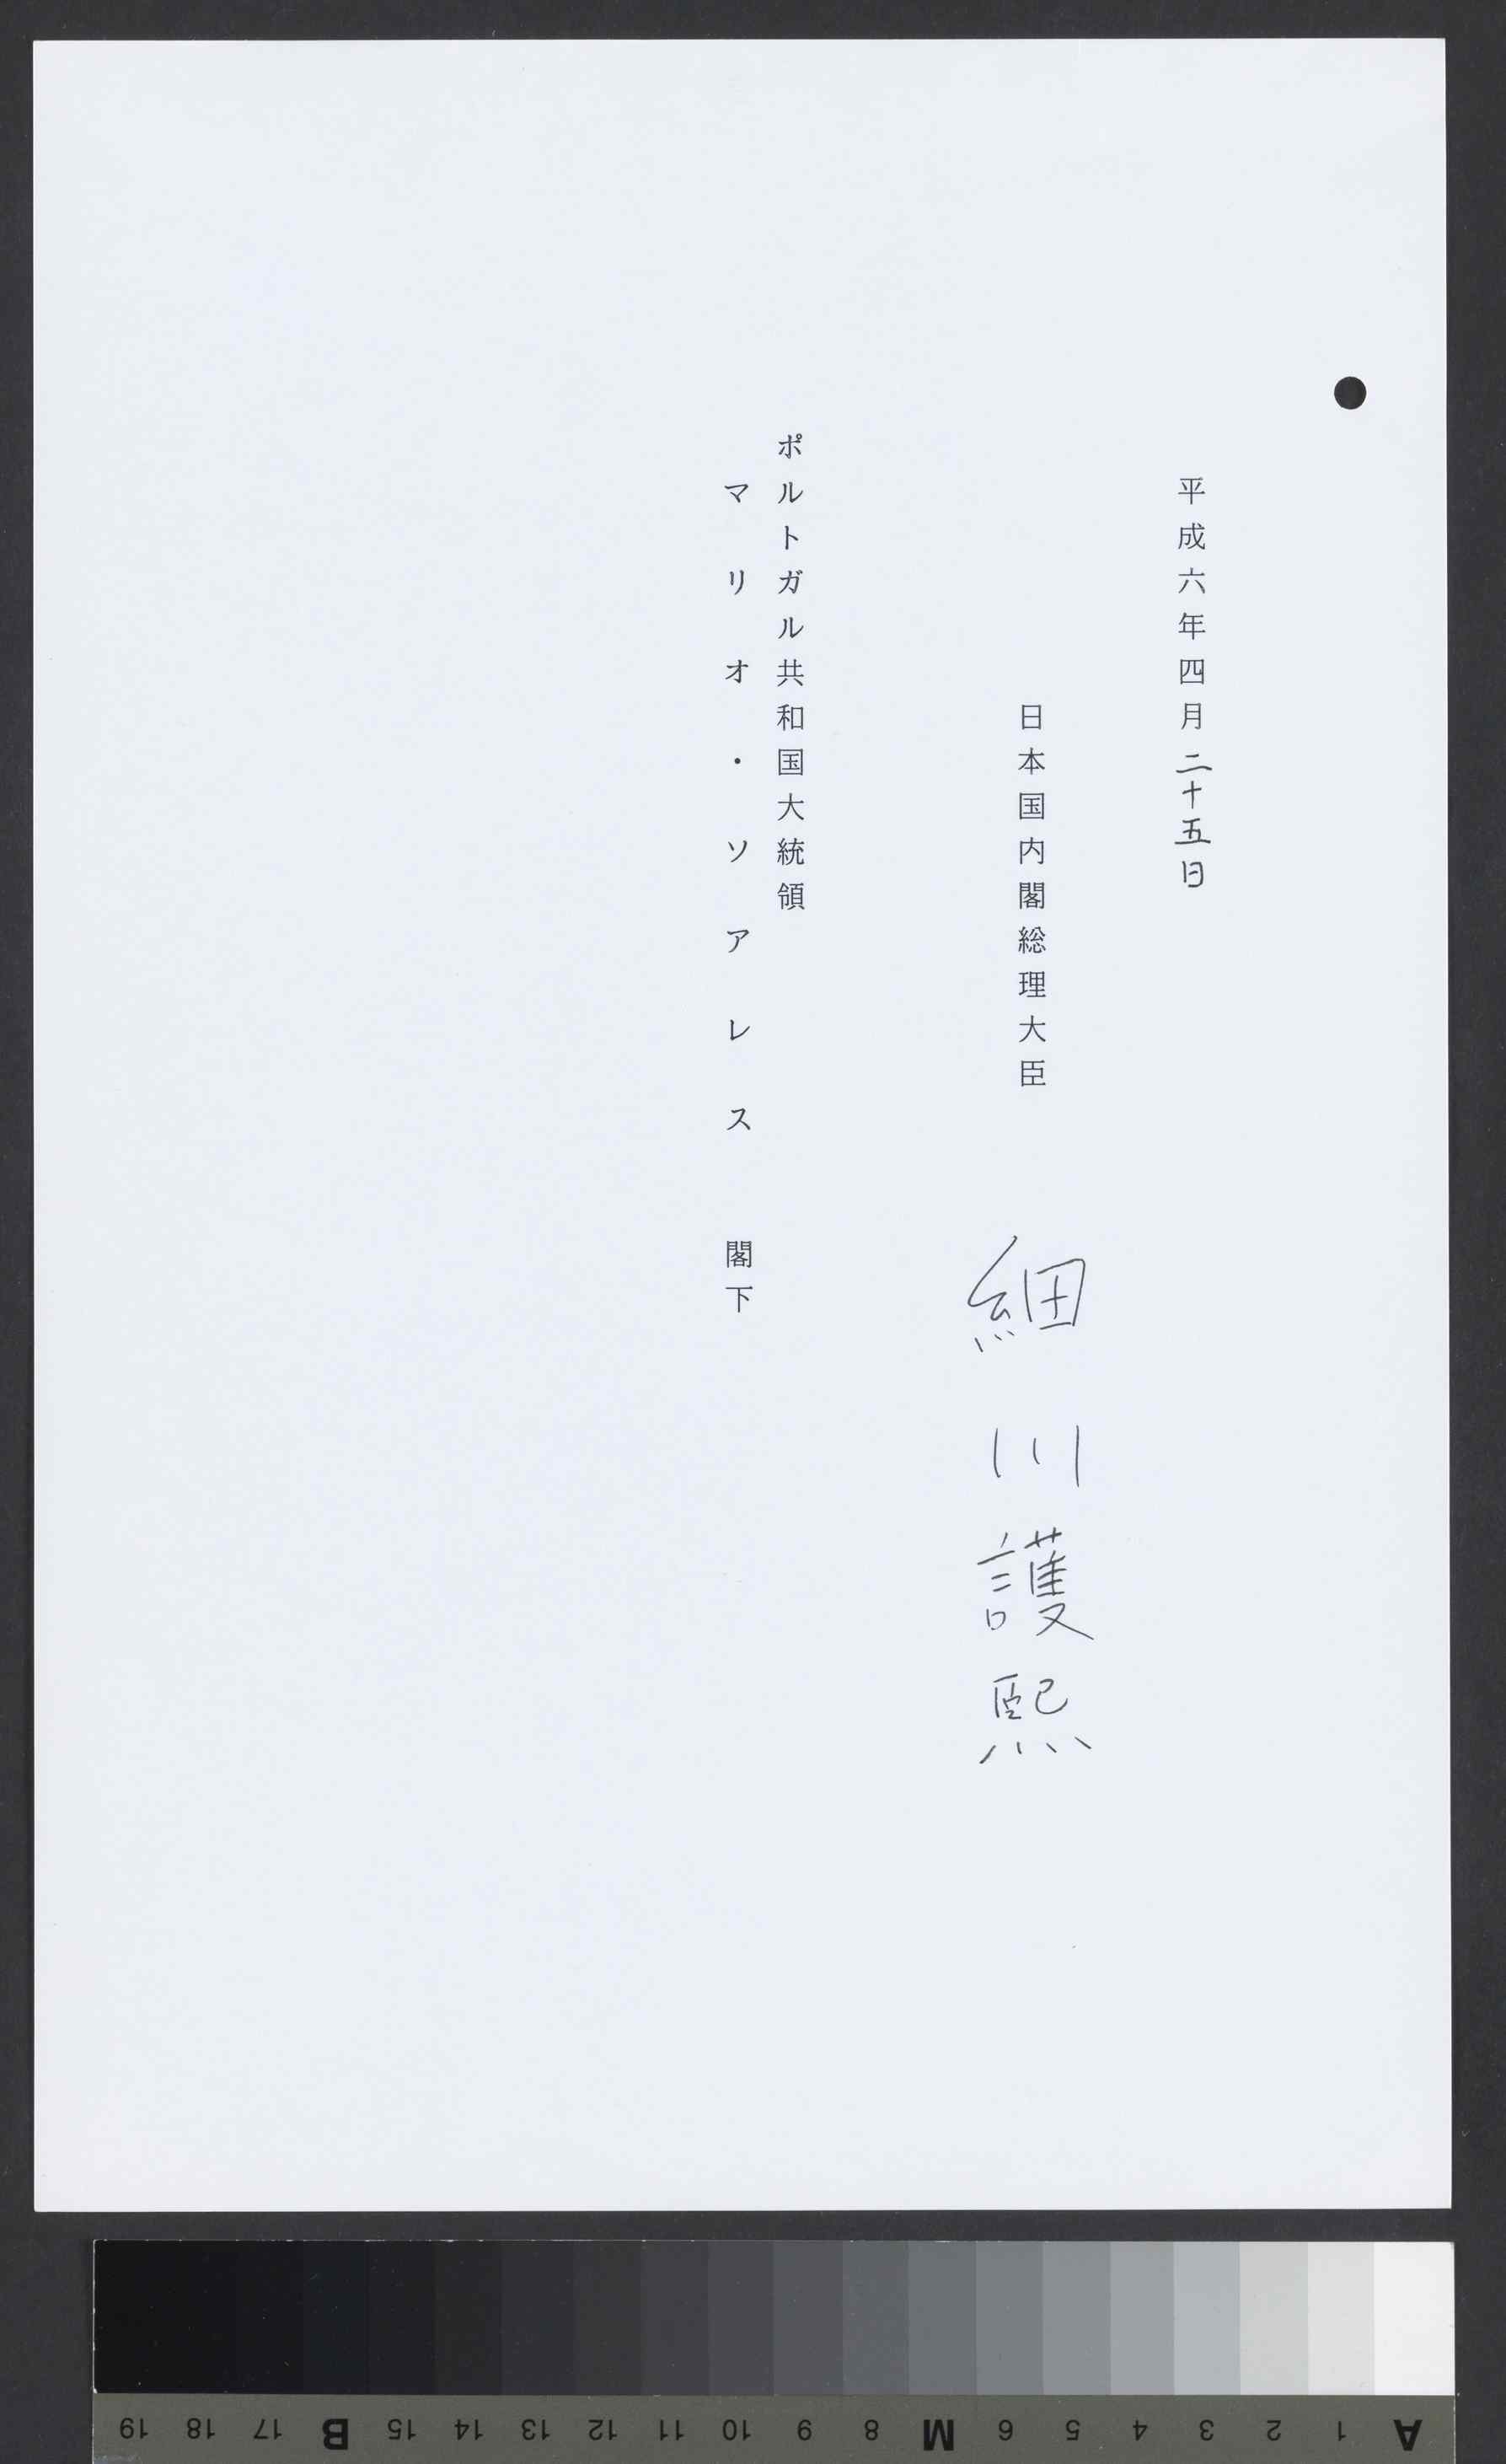 平成六年四月二十五日
日本国内閣総理大臣 細川護熙
ポルトガル共和国大統領
マリオ・ソアレス 閣下
A 1 2 3 4 5 6 M 8 9 10 11 12 13 14 15 B 17 18 19